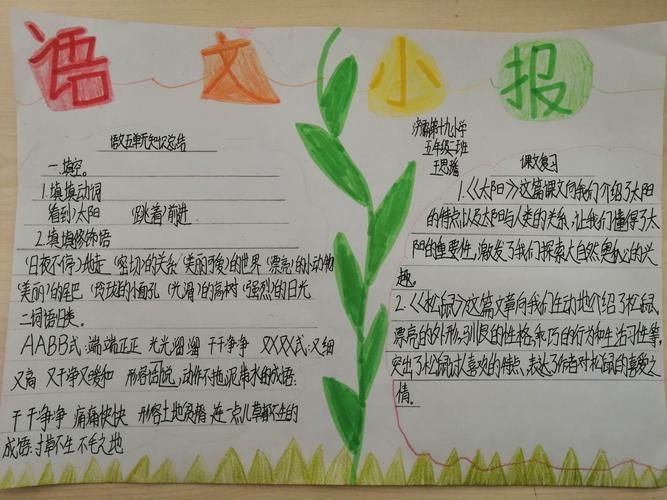 语文小报
语文五单元知识总结
一.填空。
1.填填动词
看到)太阳 (跳着)前进
2.填填修饰语
(日夜不停)地走 (密切)的关系 (美丽可爱)的世界 (漂亮)的小动物
(美丽)的尾巴 (玲珑)的小面孔 (光滑)的高树 (强烈)的日光
二词语归类。
AABB式:端端正正 光光溜溜 干干净净 又X又X式:又细
又高 又干净又暖和 形容 动作不拖泥带水的成语:
干干净净 痛痛快快 形容土地贫瘠,连一点儿草都不生的
成语:寸草不生 不毛之地
济南第十九小学
五年级二班
王思
课文复习
1.《太阳》这篇课文向我们介绍了太阳
的特点以及太阳与人类的关系,让我们懂得了太
阳的重要性,激发了我们探索大自然奥秘的兴
趣。
2.《松鼠》这篇文章向我们生动地介绍了松鼠
漂亮的外形,驯良的性格,乖巧的行为和生活习性等,
突出了松鼠讨人喜欢的特点,表达了作者对松鼠的喜爱之
情。